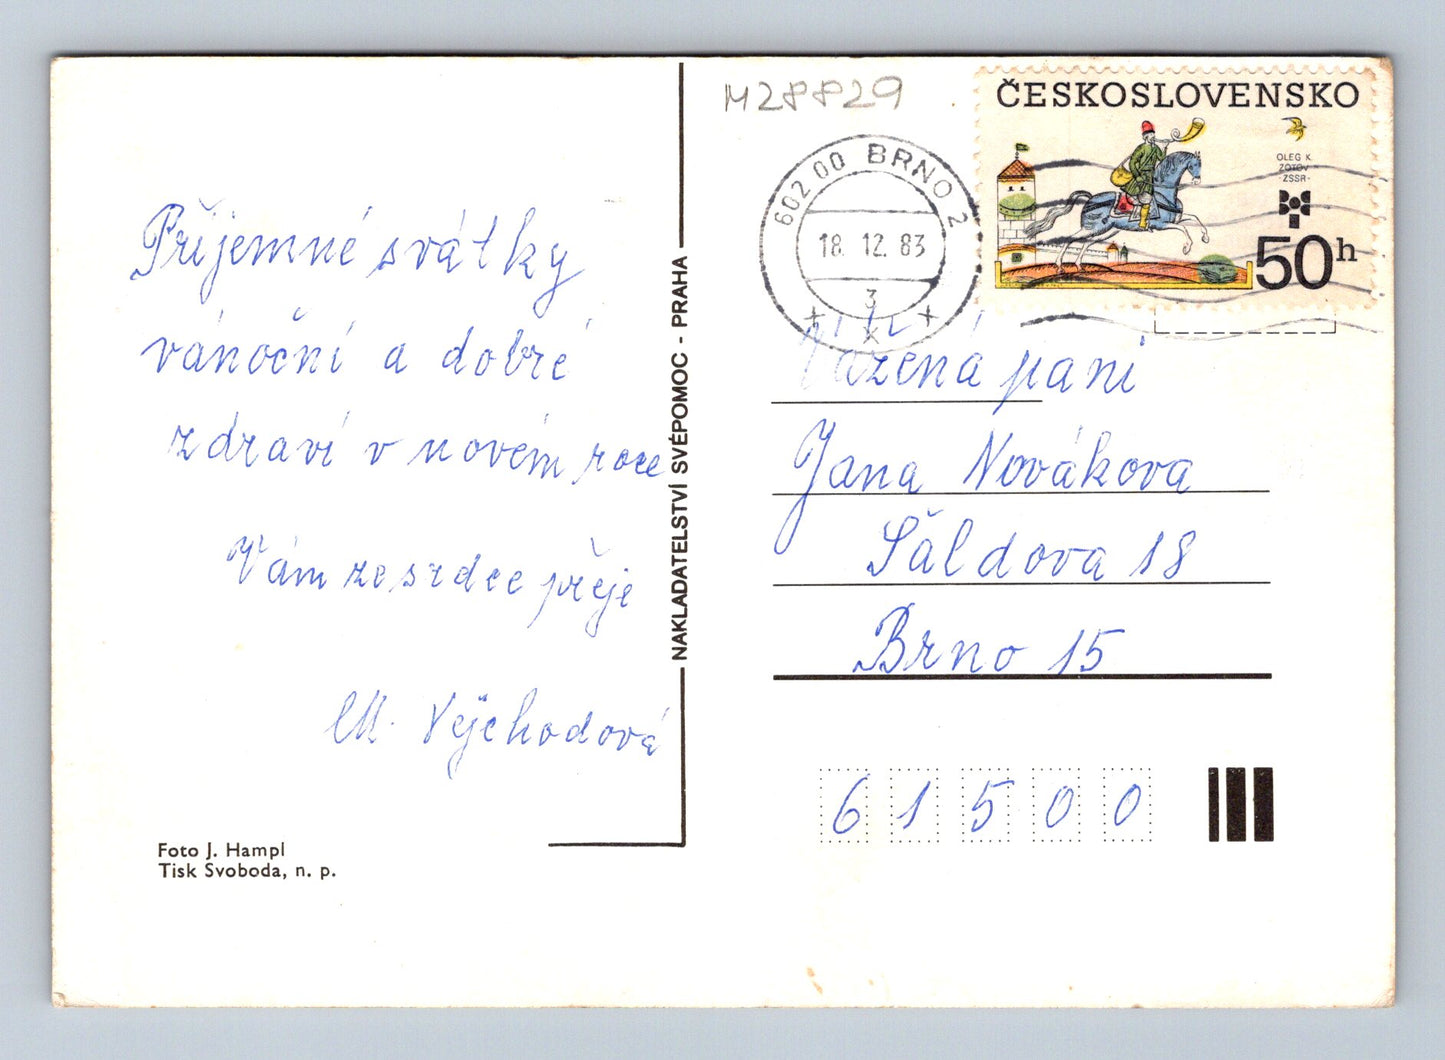 Příjemné svátky
vánoční a dobré
zdraví v novém roce
Vám ze srdce přeje
M. Východová
Foto J. Hampl
Tisk Svoboda, n. p.
NAKLADATELSTVÍ SVÉPOMOC - PRAHA
M28829
602 00 BRNO 2
18. 12. 83
3
ČESKOSLOVENSKO
OLEG K.
ZOTOV
-ZSSR-
50h
Vážená paní
Jana Novákova
Šáldova 18
Brno 15
61500